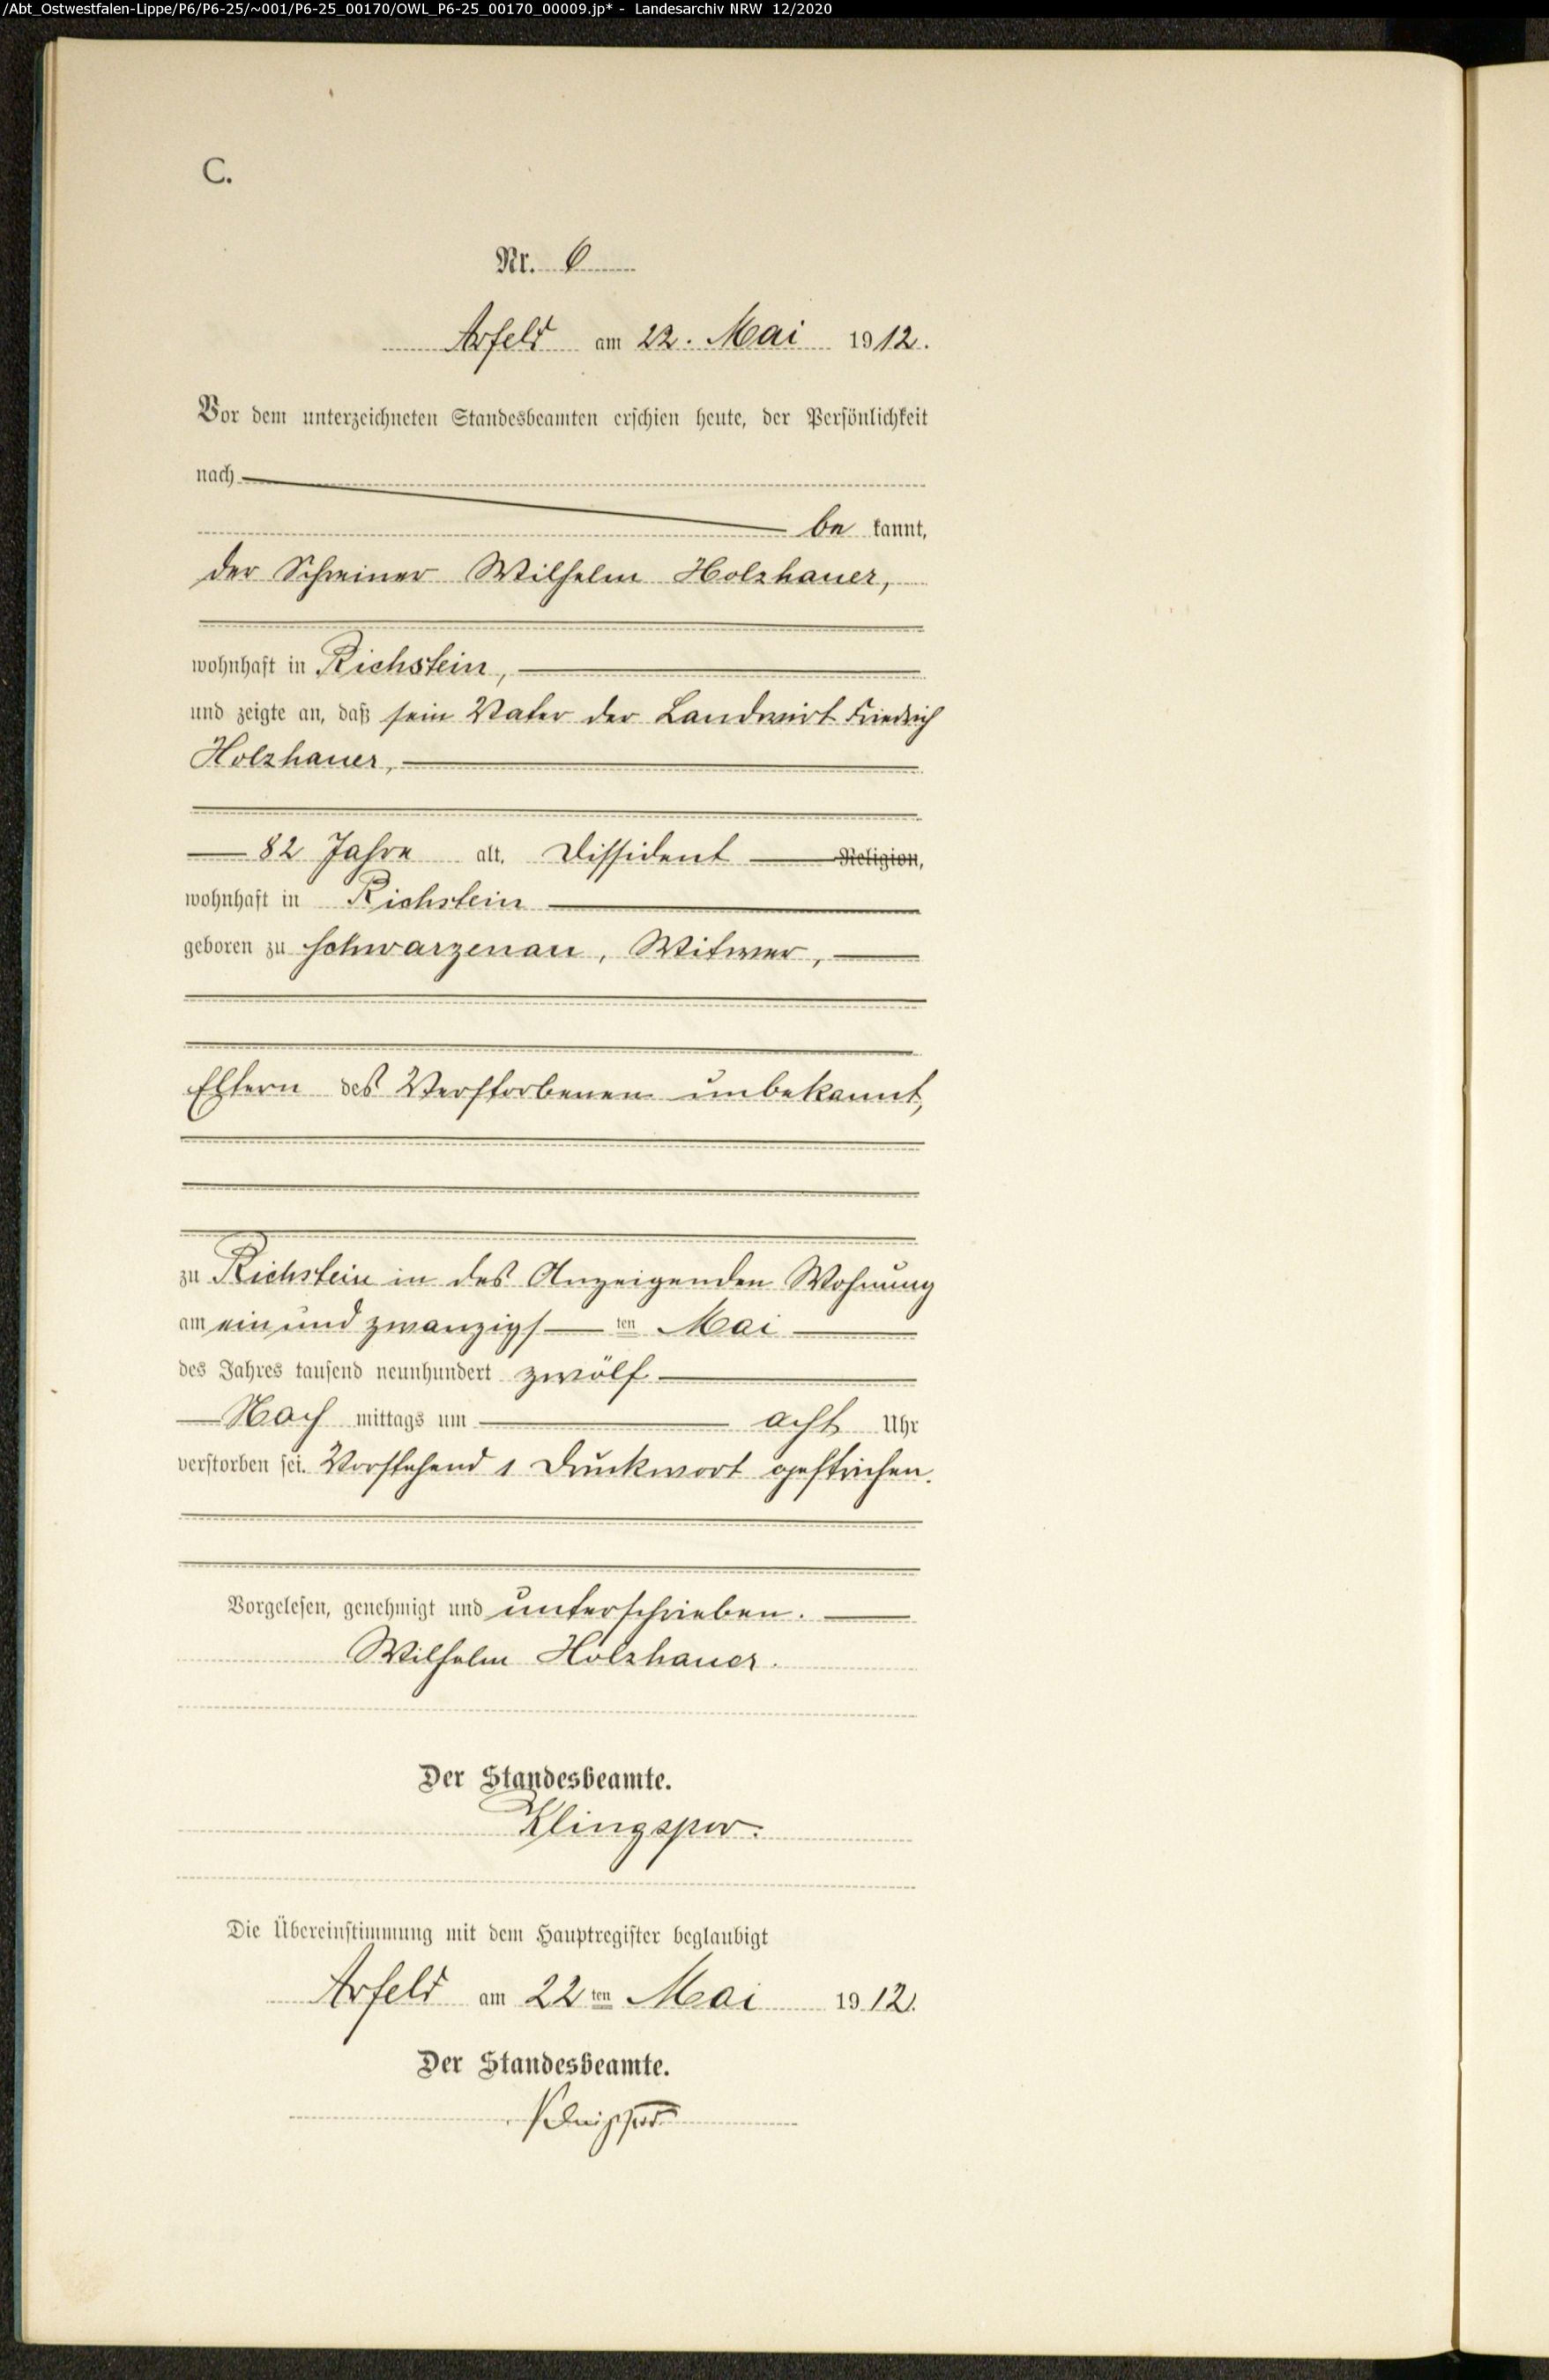 /Abt_Ostwestfalen-Lippe/P6/P6-25/~001/P6-25_00170/OWL_P6-25_00170_00009.jp* - Landesarchiv NRW 12/2020
C.
Nr. 6
Arfeld am 22. Mai 1912.
Vor dem unterzeichneten Standesbeamten erschien heute, der Persönlichkeit
nach
be kannt,
der Schreiner Wilhelm Holzhauer,
wohnhaft in Richstein,
und zeigte an, daß sein Vater der Landwirt Friedrich
Holzhauer,
82 Jahre alt, Dissident Religion,
wohnhaft in Richstein
geboren zu Schwarzenau, Witwer,
Eltern des Verstorbenen unbekannt,
zu Richstein in des Anzeigenden Wohnung
am ein und zwanzigs ten Mai
des Jahres tausend neunhundert zwölf
Nach mittags um acht Uhr
verstorben sei. Vorstehend 1 Druckwort gestrichen.
Vorgelesen, genehmigt und unterschrieben.
Wilhelm Holzhauer.
Der Standesbeamte.
Klingspor.
Die Übereinstimmung mit dem Hauptregister beglaubigt
Arfeld am 22ten Mai 1912.
Der Standesbeamte.